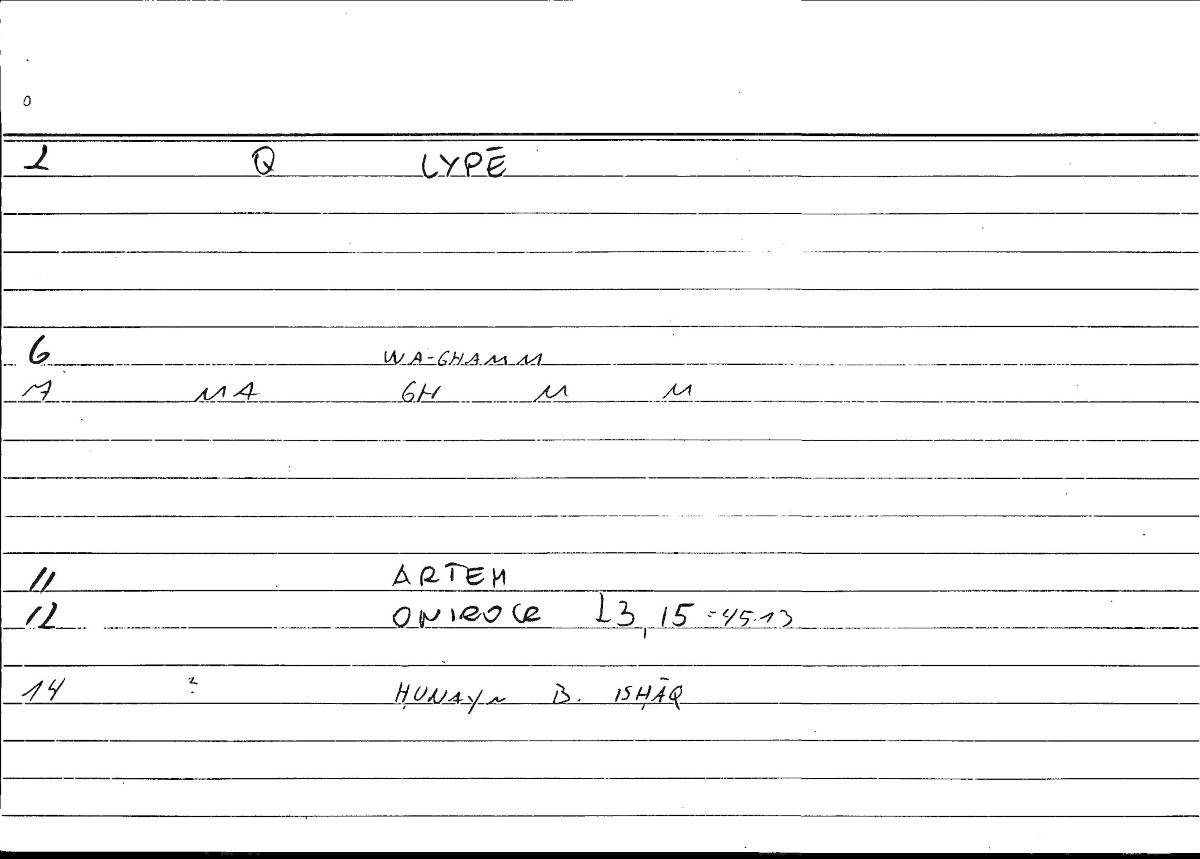 0
1 Q LYPĒ
6 WA-GHAMM
7 MA GH M M
11 ARTEM
12 ONIROCR 23,15 = 45.13
14 ? ḤUNAYN B. ISḤĀQ